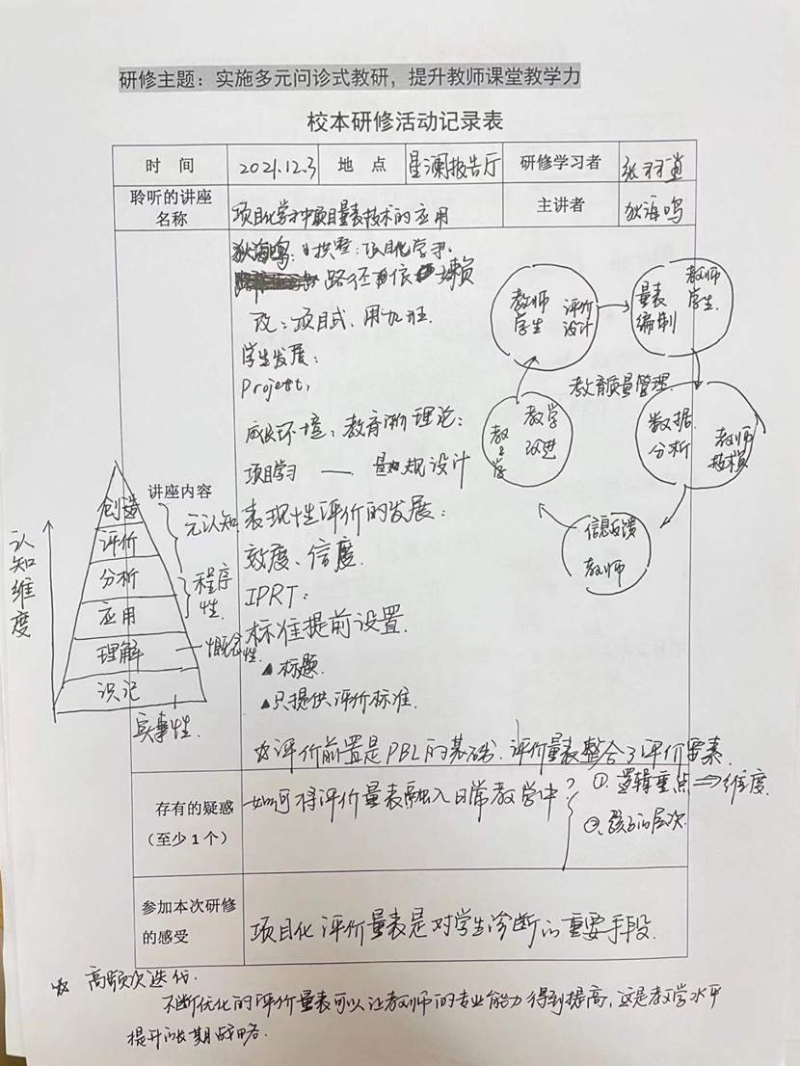 研修主题：实施多元问诊式教研，提升教师课堂教学力
校本研修活动记录表
时 间 2021.12.3 地 点 星澜报告厅 研修学习者
聆听的讲座名称 项目化学习中项目量表技术的应用 主讲者 狄海鸣
狄海鸣：项目化学习.
路径依赖
改：项目式、
学生发展：
成长环境：教育 理论：
项目学习 —— 规设计
讲座内容
表现性评价的发展：
效度、信度.
IPRT：
标准提前设置.
▲标题.
▲只提供评价标准.
评价前置是PBL的基础.评价量表整合了评价要素.
认知维度
创造
评价
分析
应用
理解
识记
元认知
程序性.
概念性.
实事性.
教师 学生 评价设计
量表编制 教师 学生.
教育质量管理.
数据分析 教师
信息反馈 教师
教学改进 教 学
存有的疑惑
（至少1个）
如何将评价量表融入日常教学中？
①.逻辑重点⇒维度.
②.孩子的层次.
参加本次研修
的感受
项目化评价量表是对学生诊断的重要手段.
☆ 高频次迭代.
不断优化的评价量表可以让教师的专业能力得到提高，这是教学水平
提升的长期战略.